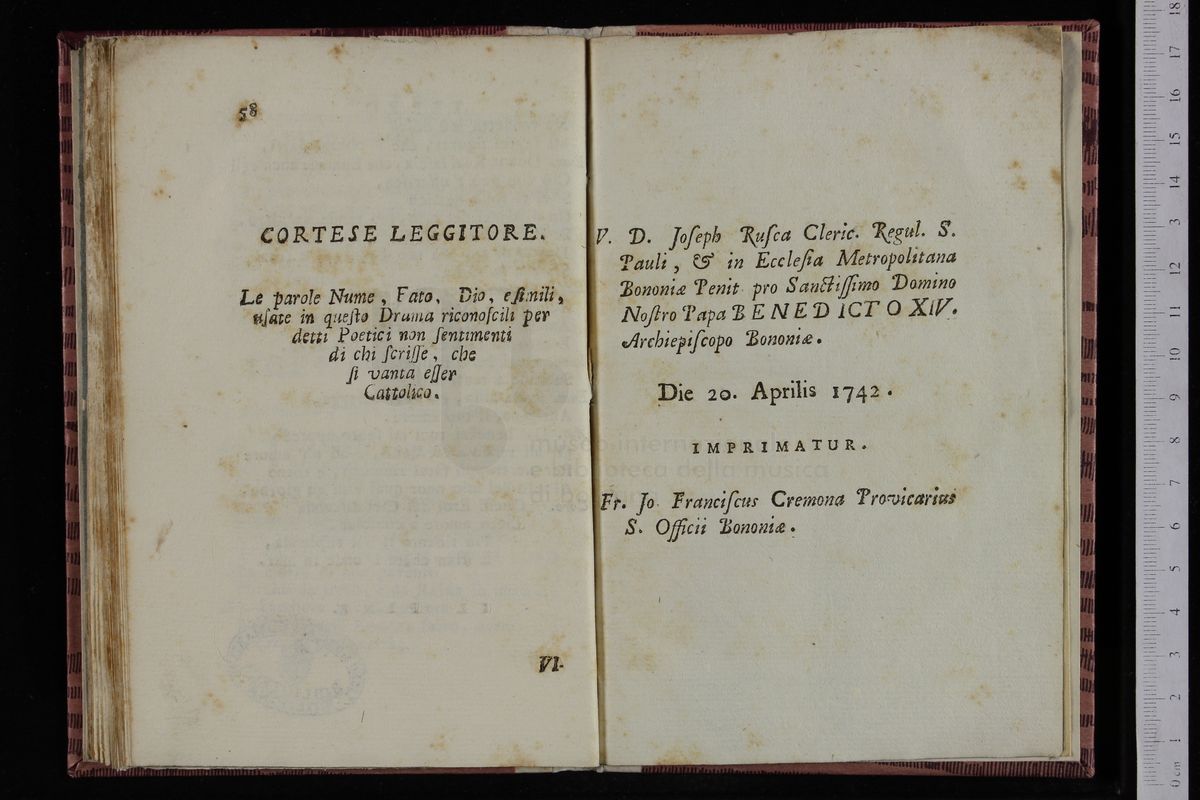 58
CORTESE LEGGITORE.
Le parole Nume, Fato, Dio, e simili,
usate in questo Drama riconoscili per
detti Poetici non sentimenti
di chi scrisse, che
si vanta esser
Cattolico.
VI-
V. D. Joseph Rusca Cleric. Regul. S.
Pauli, & in Ecclesia Metropolitana
Bononiæ Penit. pro Sanctissimo Domino
Nostro Papa BENEDICTO XIV.
Archiepiscopo Bononiæ.
Die 20. Aprilis 1742.
IMPRIMATUR.
Fr. Jo. Franciscus Cremona Provicarius
S. Officii Bononiæ.
museo internazionale
e biblioteca della musica
di bologna
18
17
16
15
14
13
12
11
10
9
8
7
6
5
4
3
2
1
0 cm